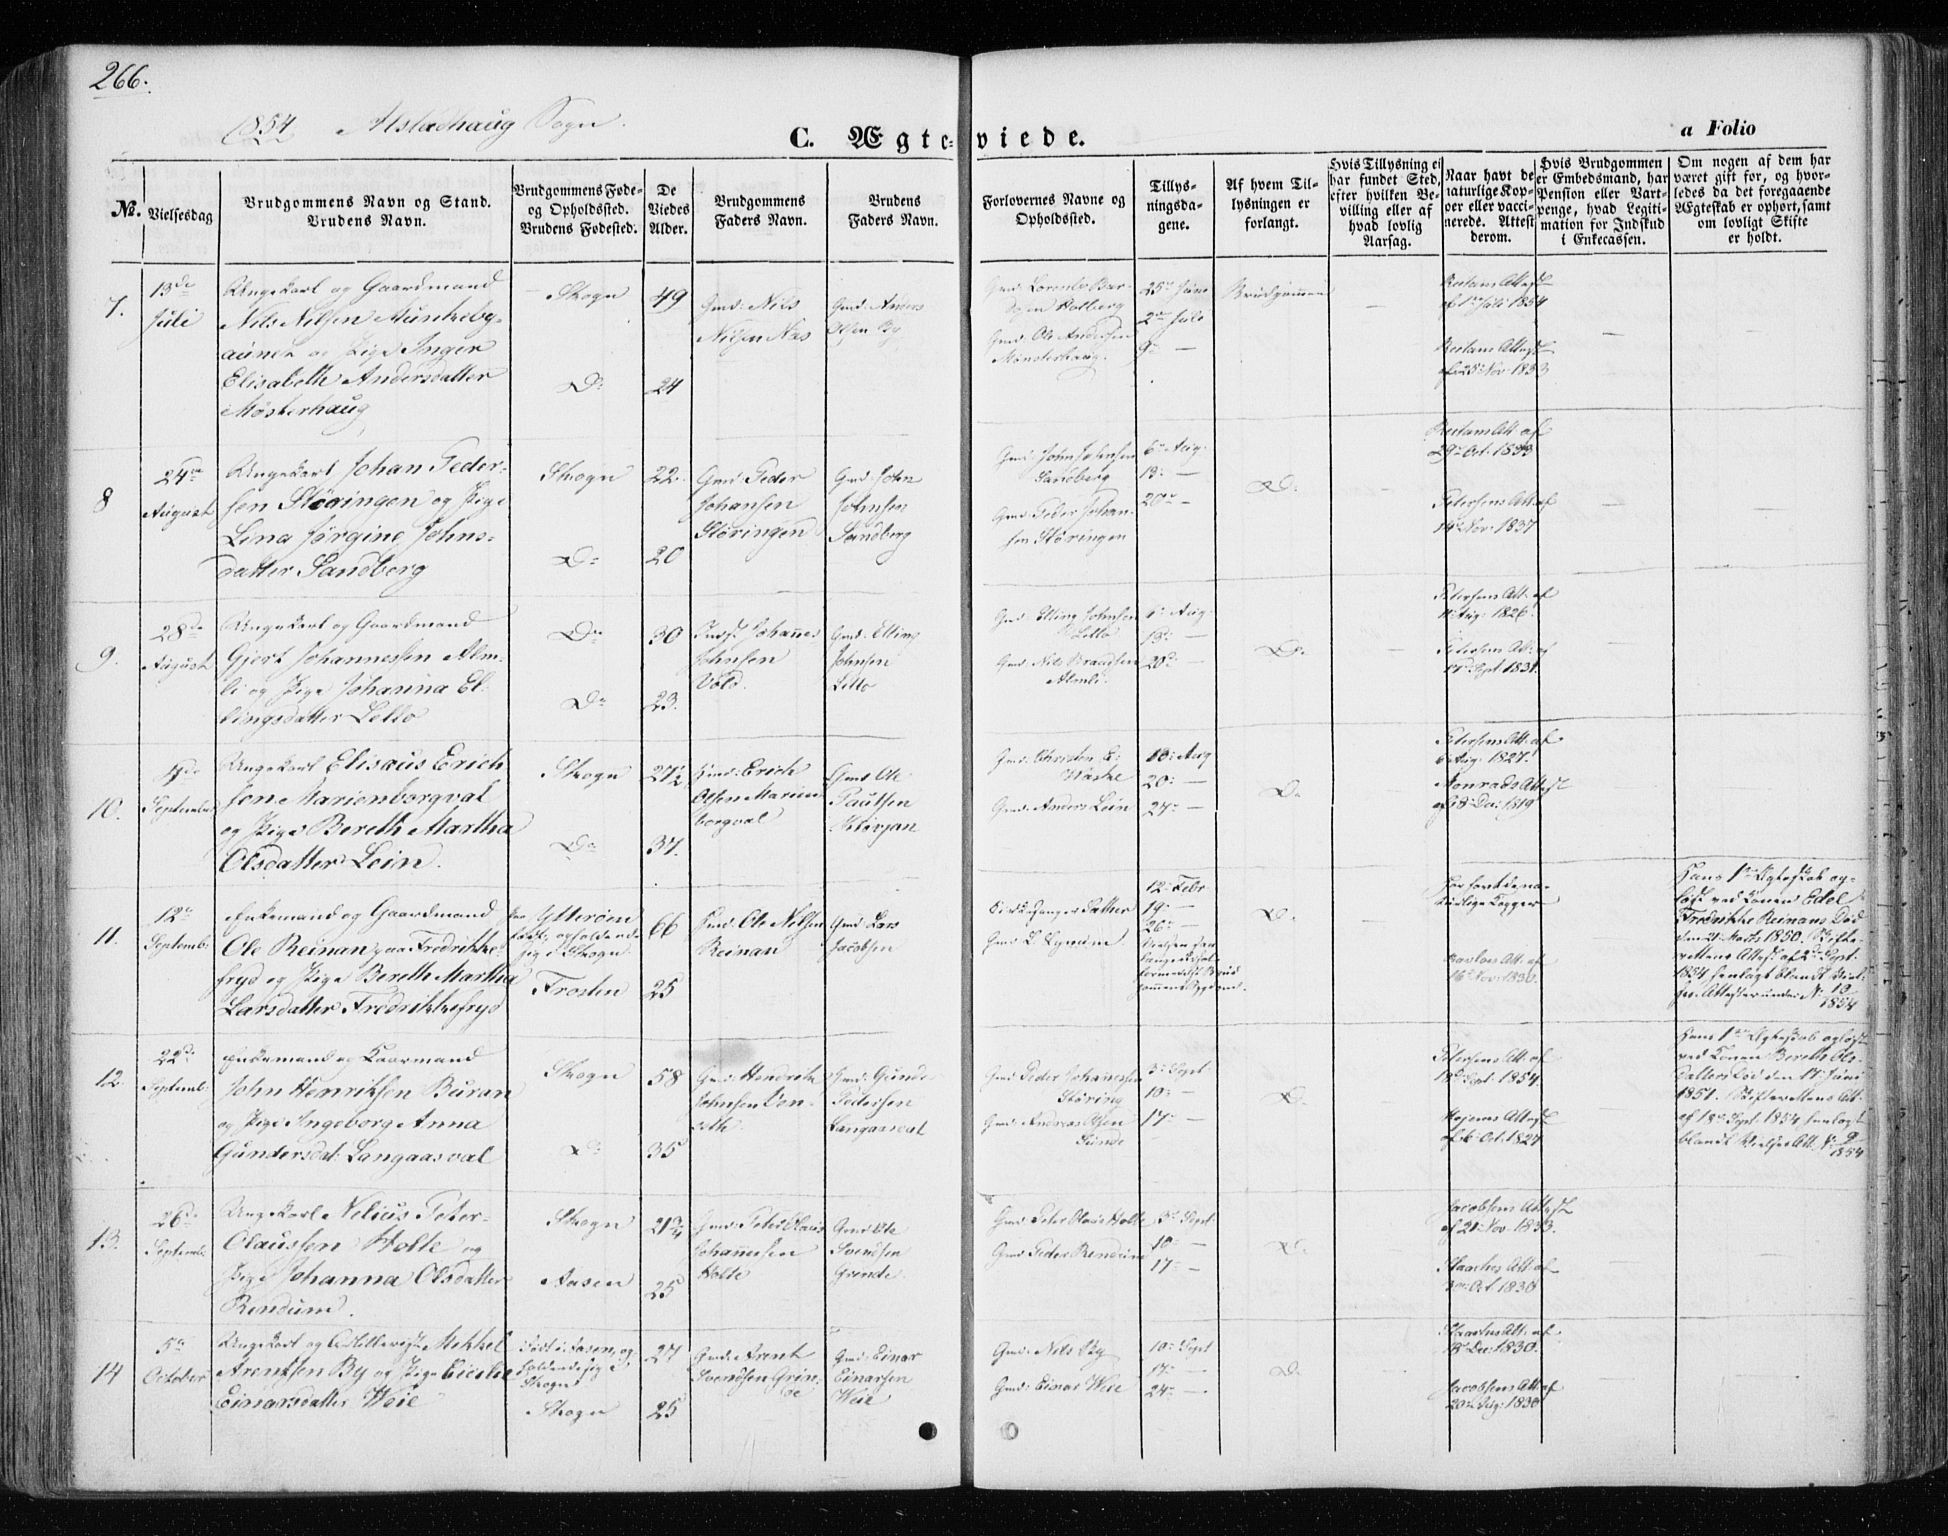 266.
1854 Alstadhaug Sogn.
C. Ægte-
viede.
a Folio
No.
Vielsesdag
Brudgommens Navn og Stand.
Brudens Navn.
Brudgommens Føde-
og Opholdssted.
Brudens Fødested.
De
Viedes
Alder.
Brudgommens
Faders Navn.
Brudens
Faders Navn.
Forlovernes Navne og
Opholdssted.
Tillys-
ningsda-
gene.
Af hvem Til-
lysningen er
forlangt.
Hvis Tillysning ei
har fundet Sted,
efter hvilken Be-
villing eller af
hvad lovlig
Aarsag.
Naar havt de
naturlige Kop-
per eller vacci-
nerede. Attest
derom.
Hvis Brudgommen
er Embedsmand, har
Pension eller Vart-
penge, hvad Legiti-
mation for Indskud
i Enkecassen.
Om nogen af dem har
været gift før, og hvor-
ledes da det foregaaende
Ægteskab er ophørt, samt
om lovligt Skifte
er holdt.
7.
13de
Juli
Ungekarl og Gaardmand
Nils Nilsen Auntheby-
aunet og Pige Inger
Elisabeth Andersdatter
Mösterhaug
Skogn
Do
49
24
Gmd: Nils
Nilsen Nas
Gmd: Anders
Olsen By
Gmd: Lorents Bar-
Holberg
Gmd: Ole Andersen
Mönsterhaug.
25de Juni
2de Juli
9de —
Brudgommen
Attest
af 1ste Juli 1854
Attest
af 28 Nov. 1833
8
24de
August
Ungekarl Johan Peder-
sen Störingen og Pige
Lina Jørgine Johns-
datter Sandberg
Skogn
Do
22.
20
Gmd: Peder
Johansen
Störingen
Gmd: John
Johnsen
Sandberg
Gmd: John Johnsen
Sandberg
Gmd: Peder Johan-
sen Störingen
6te Aug.
13: —
20de —
Do
Att. af
29de Oct. 1833
Petersens Att. af
14de Nov. 1837
9.
28de
August
Ungekarl og Gaardmand
Gjert Johannessen Alm-
li og Pige Johanna El-
lingsdatter Lello
Do
Do
30
23.
Indst Johannes
Johnsen
Vold.
Gmd: Elling
Johnsen
Lello
Gmd: Elling Johnsen
Lello
Gmd: Nils Brandsen
Almli.
6te Aug.
13: —
20de —
Do
Petersens Att. af
11 Aug. 1826.
Petersens Att. af
17de Sept. 1831.
10.
September
Ungekarl Elisæus Erich
sen Marienborgval
og Pige Bereth Martha
Olsdatter Lein.
Skogn
Do
27½
37.
Hmd: Erich
Olsen Marien
borgval
Gmd Ole
Paulsen
Gmd: Christen E:
Gmd: Anders Lein
13: Aug
20: —
24: —
Do
Petersens Att. af
Aug. 1827.
Monrads Attest
af 8de Dec: 1819
11.
12te
Septemb.
Enkemand og Gaardmand
Ole Reinan paa Fredrikke-
fryd og Pige Bereth Martha
Larsdatter Fredrikkefryd
Ytteröen
født, opholdende
sig i Skogn.
Frosten
66
25
Hmd: Ole Nilsen
Reinan
Gmd: Lars
Jacobsen
Kirkesanger Sather
Gmd: L. Lynum.
12: Febr
19: —
26: —
Do
Har havt de na-
turlige Kopper
Att. af
16de Nov: 1830.
Hans 1ste Ægteskab op-
løst ved Konen Edel
Fredrikke Reinans Død
den 21 Marts 1850. Skifte-
rettens Attest af 2de Sept.
1854 henlagt blandt Viel-
ses Attester under No 10
1854
12.
22de
Septemb:
Enkemand og Kaarmand
John Henriksen Buran
og Pige Ingeborg Anna
Gundersdat: Langaasval
Skogn
Do
58
35
Gmd: Hendrik
Johnsen
Gmd: Gunder
Pedersen
Langaasval
Gmd: Peder Johannesen
Störing
Gmd: Andreas Olsen
Sunde
3: Sept
10: —
17: —
Do
Petersens Att. af
18de Sept. 1854.
Attest
af 6te Oct. 1824
Hans 1ste Ægteskab opløst
ved Konen Bereth Ols-
datters Død den 17 Juni
1851. Skifterettens Att.
af 18de Sept. 1854, henlagt
blandt Vielses Att. No 9
1854
13.
26de
Septemb:
Ungekarl Nelius Peter-
Claussen Holte og
Pige Johanna Olsdatter
Rendum.
Skogn
Aasen
21¾
25
Gmd: Peter Olaus
Johannesen
Holte
Gmd: Ole
Svendsen
Grinde.
Gmd: Peter Olaus Holte
Gmd: Peder Rendum
3de Sept
10: —
17: —
Do
Jacobsens Attest
af 21: Nov. 1833.
Att. af
Oct. 1830
14
5te
October
Ungekarl og Mekkel
Arentsen By og Pige
Einarsdatter Weie
født i Aasen, op-
holdende sig i
Skogn
Skogn
27
25
Gmd: Arent
Svendsen Grin-
de
Gmd: Einar
Einarsen
Weie
Gmd: Nils By
Gmd: Einar Weie
10: Sept
17: —
24: —
Do
Att. af
Dec. 1830.
Jacobsens Att. af
20de Aug: 1830